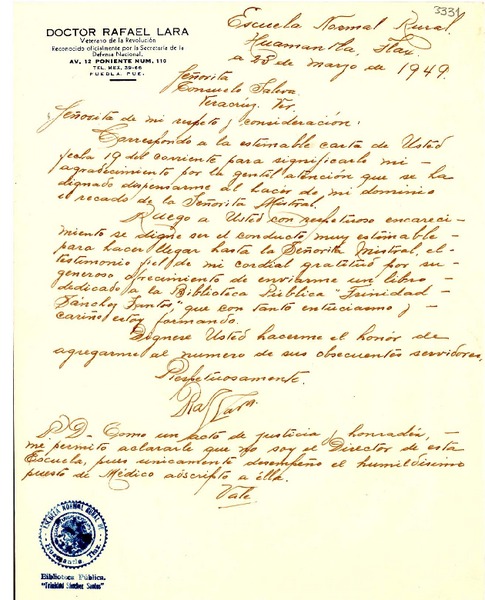 3331
DOCTOR RAFAEL LARA
Veterano de la Revolución
Reconocido oficialmente por la Secretaría de la
Defensa Nacional.
AV. 12 PONIENTE NUM. 110
TEL. MEX. 39-66
PUEBLA, PUE.
Escuela Normal Rural.
Huamantla, Tlax.
a 28 de marzo de 1949.
Señorita
Consuelo Saleva.
Veracruz. Ver.
Señorita de mi respeto y consideración:
Correspondo a la estimable carta de Usted
fecha 19 del corriente para significarle mi -
agradecimiento por la gentil atención que se ha
dignado dispensarme al hacer de mi dominio
el recado de la Señorita Mistral.
Ruego a Usted con respetuoso encareci-
miento se digne ser el conducto muy estimable -
para hacer llegar hasta la Señorita Mistral, el -
testimonio fiel de mi cordial gratitud por su -
generoso ofrecimiento de enviarme un libro -
dedicado a la Biblioteca Pública "Trinidad -
Sánchez Santos", que con tanto entuciasmo y
cariño estoy formando.
Dígnese Usted hacerme el honor de
agregarme al número de sus obsecuentes servidores,
Respetuosamente.
Raf Lara.
P.D.- Como un acto de justicia y honradez, -
me permito aclararle que no soy el Director de esta
Escuela, pues unicamente desempeño el humildísimo
puesto de Médico adscripto a élla.
Vale
ESCUELA NORMAL RURAL
Huamantla, Tlax.
Biblioteca Pública.
"Trinidad Sánchez Santos"